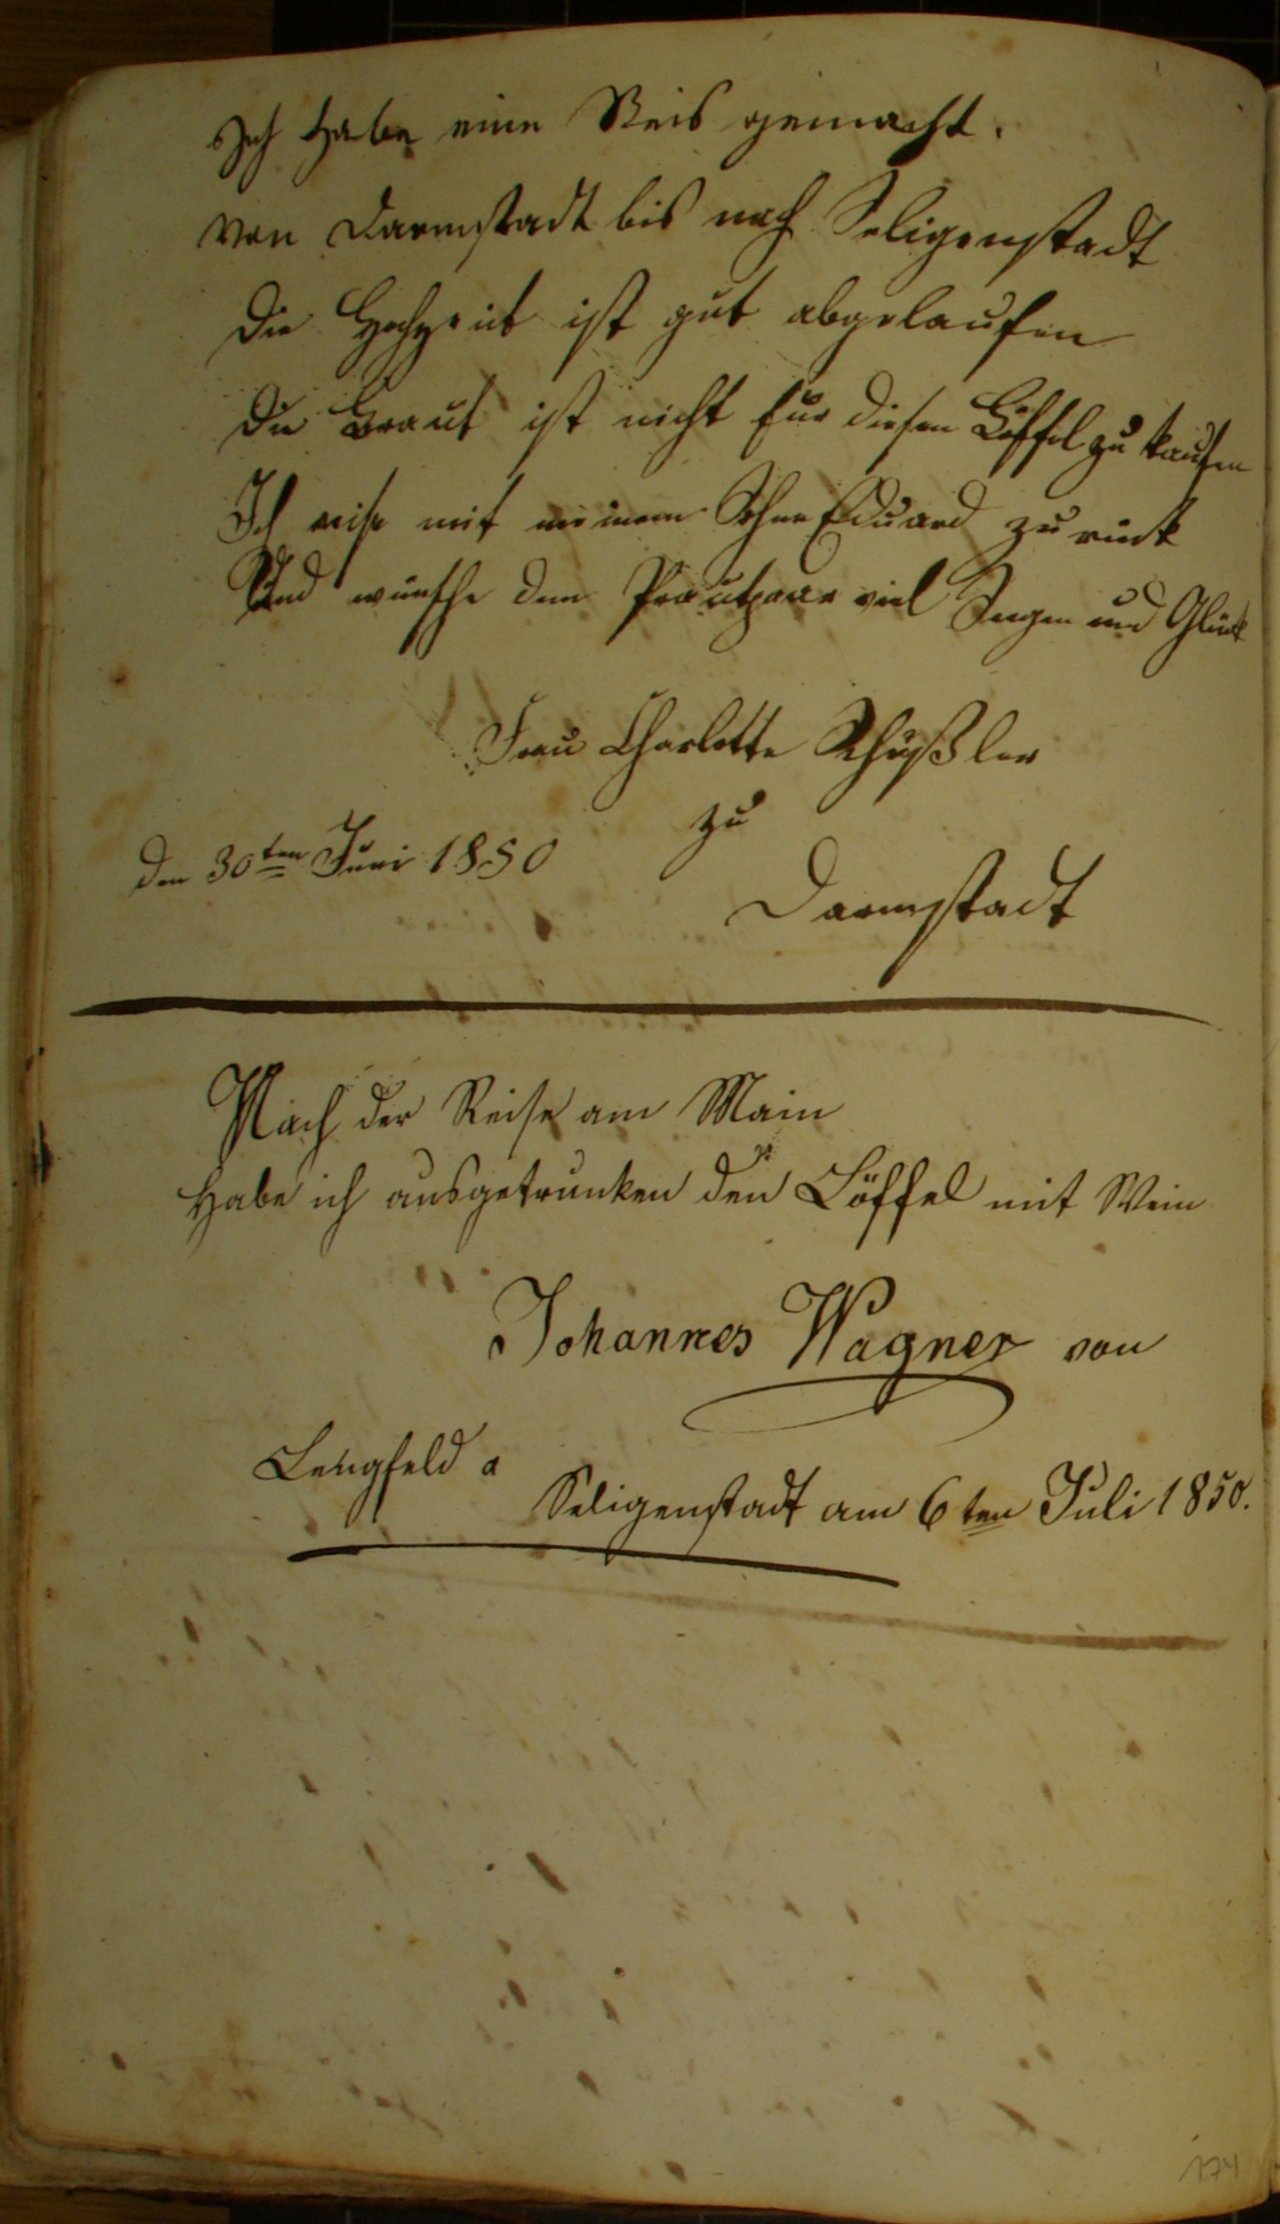 Ich habe eine Reis gemacht.
von Darmstadt bis nach Seligenstadt
die Hochzeit ist gut abgelaufen
die Braut ist nicht fur diesen Löffel zu kaufen
Ich reise mit meinem Sohne Eduard zurück
Und wünsche dem Prautpaar viel Segen und Glück
Frau Charlotte Schußler
zu
den 30ten Juni 1850
Darmstadt
Nach der Reise am Main
Habe ich ausgetrunken den Löffel mit Wein
Johannes Wagner von
Lengfeld
Seligenstadt am 6ten Juli 1850.
174